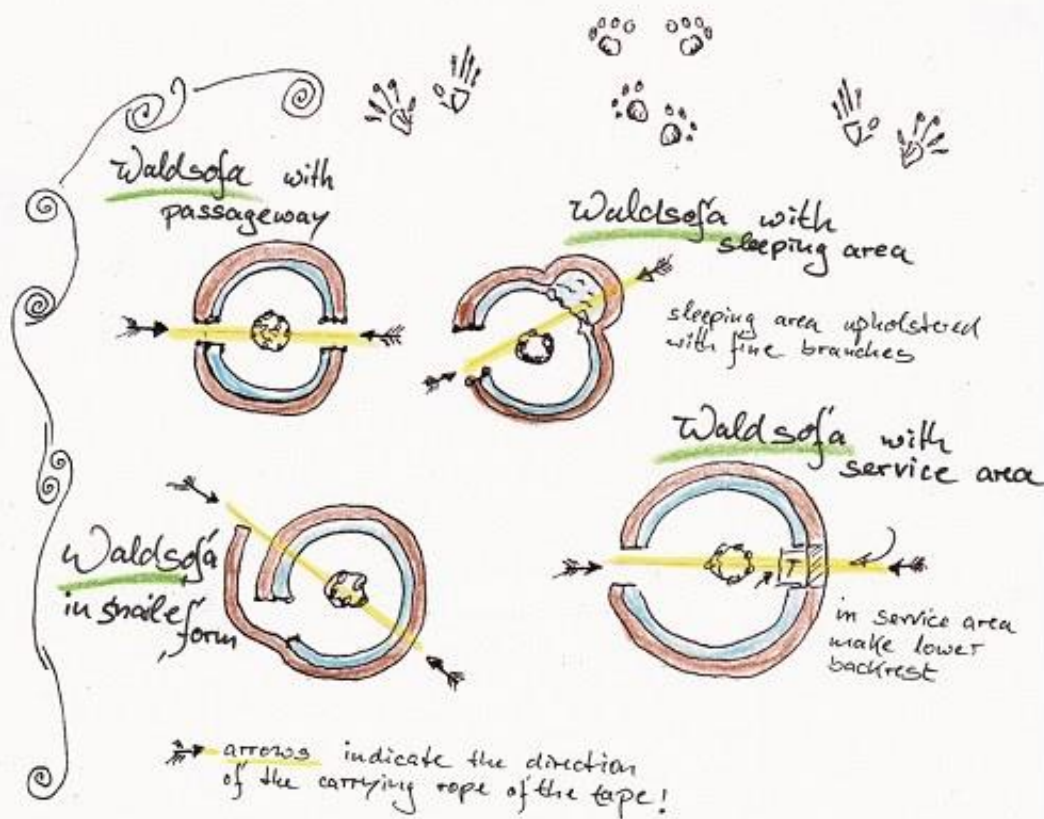 Waldsofa with
passageway
Waldsofa with
sleeping area
sleeping area upholstered
with fine branches
Waldsofa with
service area
T
in service area
make lower
backrest
Waldsofa
in snail
form
arrows indicate the direction
of the carrying rope of the tape!